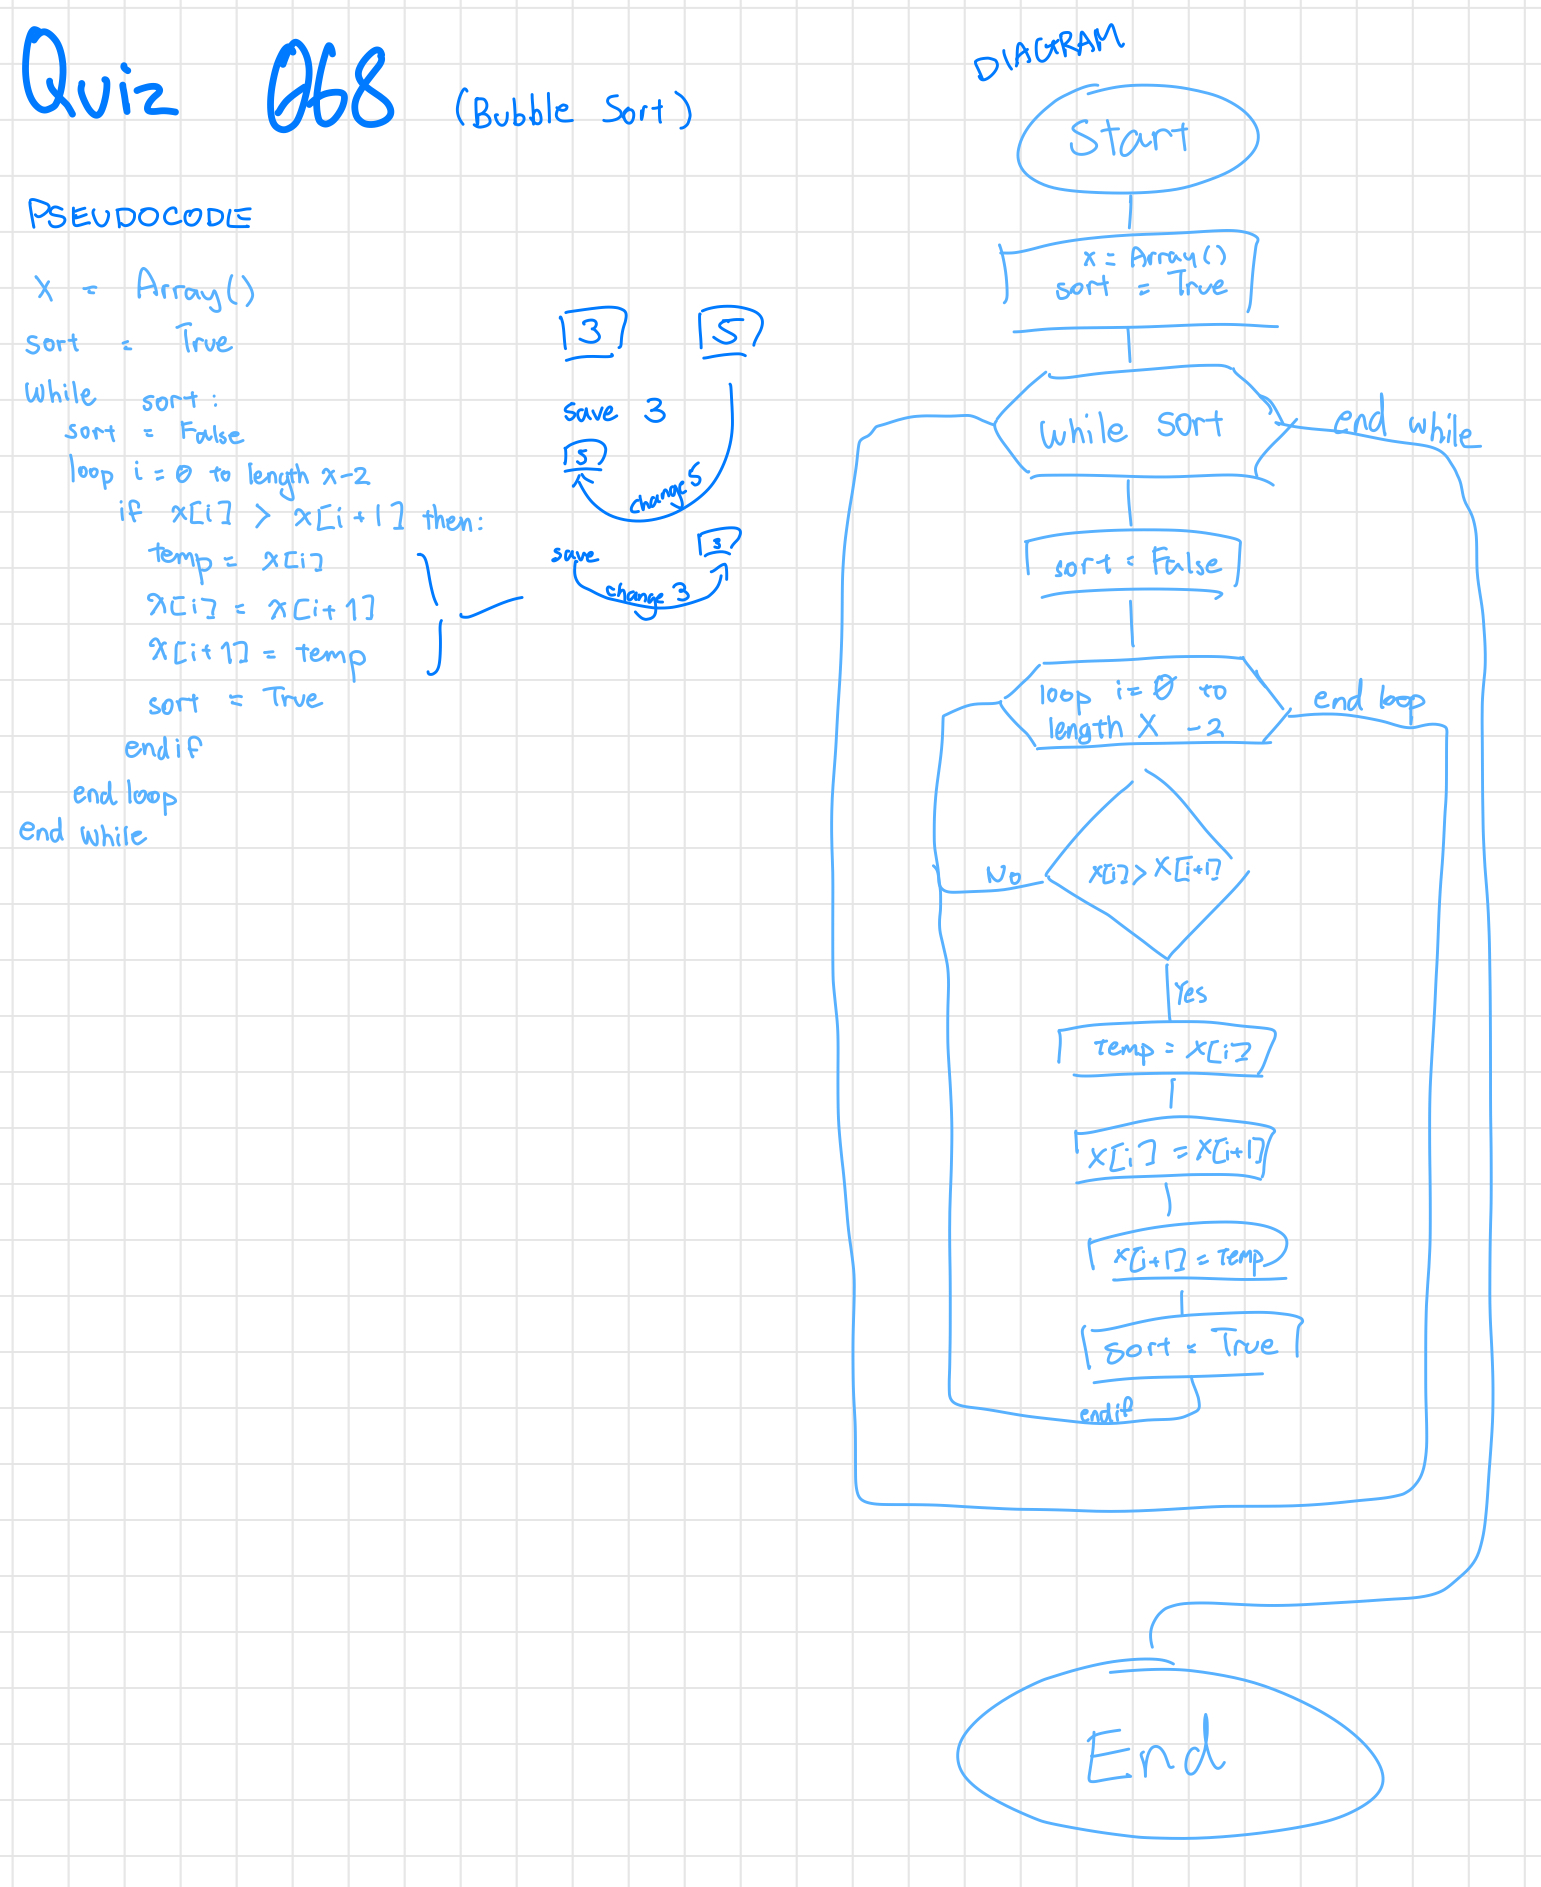 Quiz 068 (Bubble Sort)
PSEUDOCODE
x = Array()
sort = True
While sort:
sort = False
loop i = 0 to length x-2
if x[i] > x[i+1] then:
temp = x[i]
x[i] = x[i+1]
x[i+1] = temp
sort = True
endif
end loop
end while
3 5
save 3
5
change 5
3
save
change 3
DIAGRAM
Start
x = Array()
sort = True
while sort
end while
sort = False
loop i = 0 to
length X -2
end loop
x[i] > x[i+1]
No
Yes
temp = x[i]
x[i] = x[i+1]
x[i+1] = temp
sort = True
endif
End